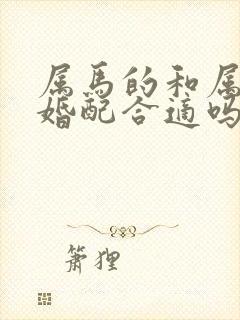 属马的和属
婚配合适吗
箫狸